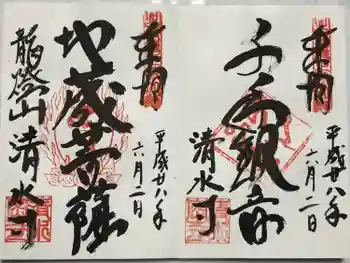 奉拝
千手観音
清水寺
平成廿八年
六月二日
奉拝
地蔵菩薩
龍燈山 清水寺
平成廿八年
六月二日